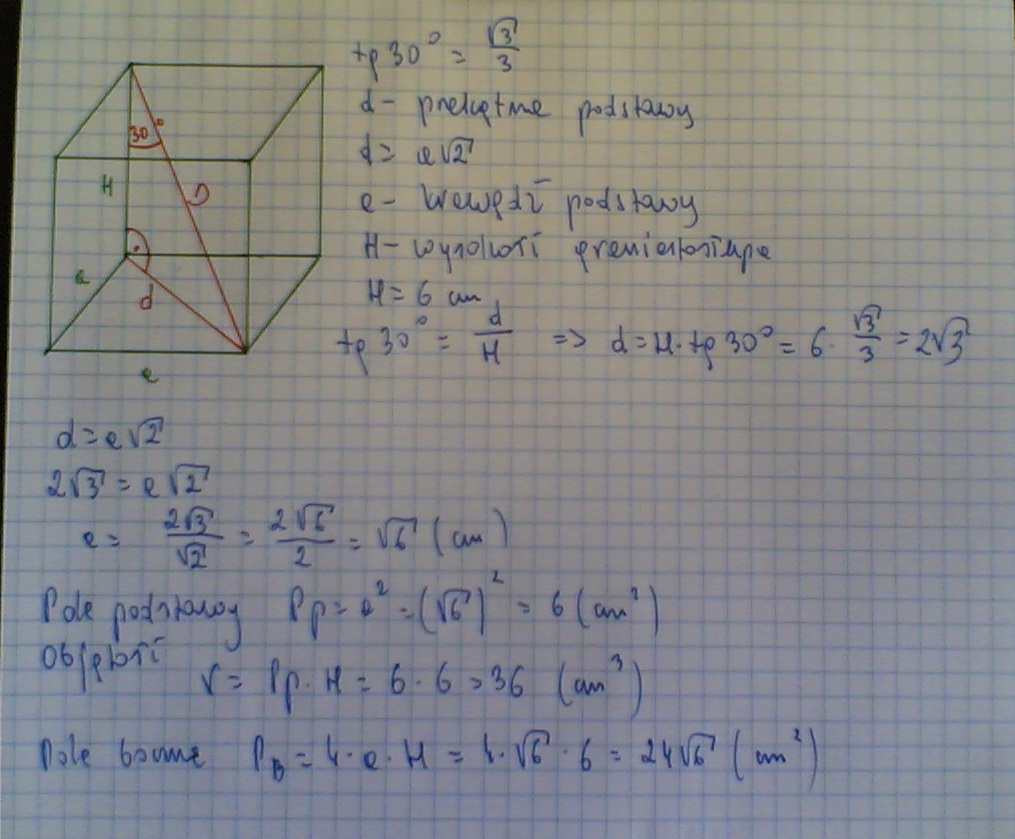 30°
H
D
a
d
a
tg 30° = √3/3
d - przekątna podstawy
d = a√2
a - krawędź podstawy
H - wysokość graniastosłupa
H = 6 cm
tg 30° = d/H => d = H · tg 30° = 6 · √3/3 = 2√3
d = a√2
2√3 = a√2
a = 2√3/√2 = 2√6/2 = √6 (cm)
Pole podstawy Pp = a² = (√6)² = 6 (cm²)
Objętość
V = Pp · H = 6 · 6 = 36 (cm³)
Pole boczne P_B = 4 · a · H = 4 · √6 · 6 = 24√6 (cm²)